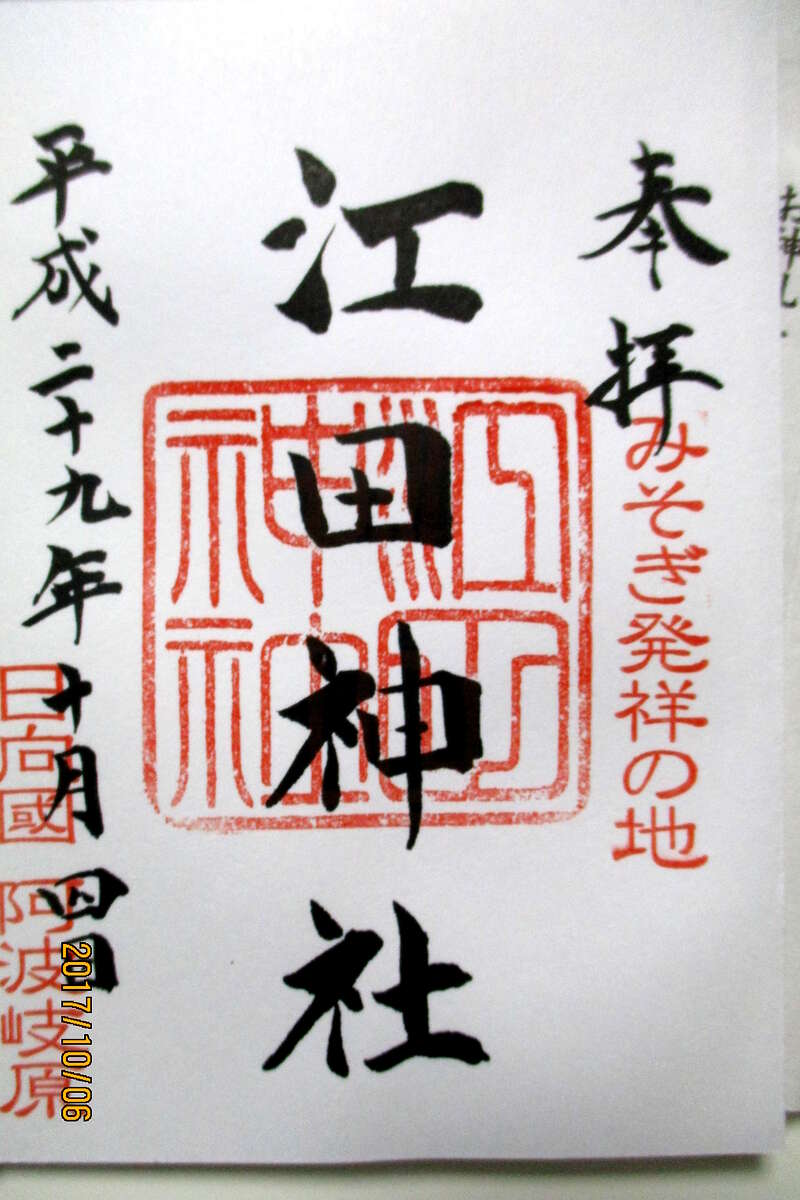 奉拝
みそぎ発祥の地
江田神社
江田神社
平成二十九年十月四日
日向國 阿波岐原
2017/10/06